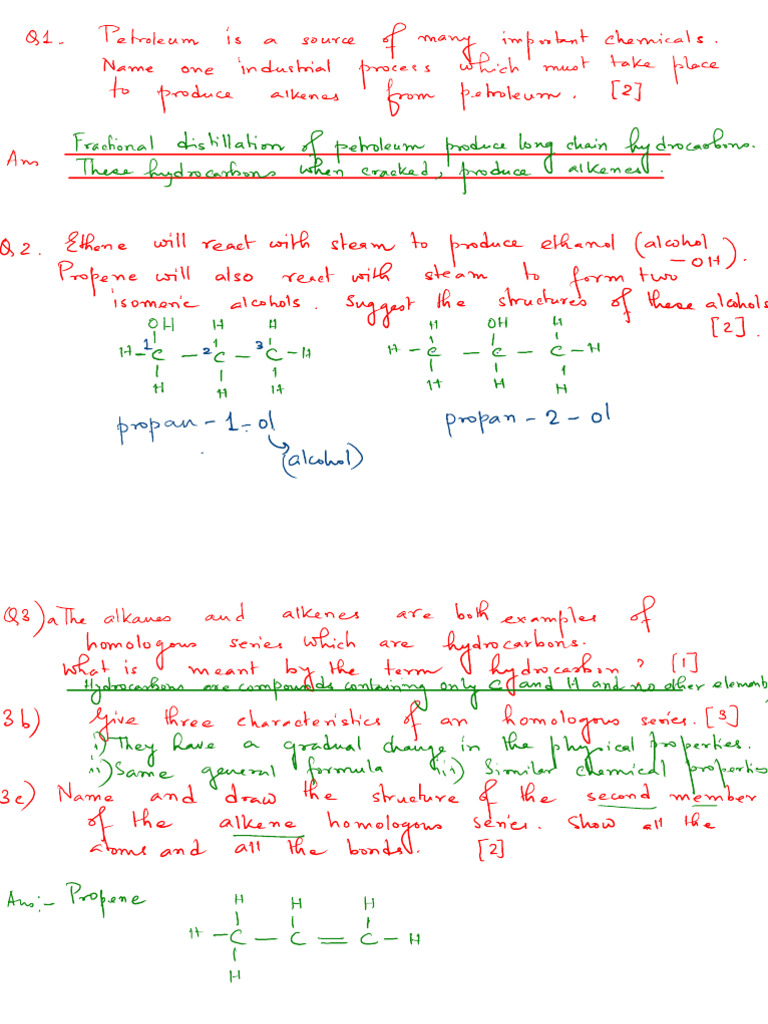 Q1. Petroleum is a source of many important chemicals.
Name one industrial process which must take place
to produce alkenes from petroleum. [2]
Ans Fractional distillation of petroleum produce long chain hydrocarbons.
These hydrocarbons when cracked, produce alkenes.
Q2. Ethene will react with steam to produce ethanol (alcohol
-OH).
Propene will also react with steam to form two
isomeric alcohols. Suggest the structures of these alcohols
[2].
OH H H H OH H
H-1C - 2C - 3C-H H - C - C - C-H
H H H H H H
propan-1-ol propan-2-ol
(alcohol)
Q3)a The alkanes and alkenes are both examples of
homologous series which are hydrocarbons.
What is meant by the term hydrocarbon? [1]
Hydrocarbons are compounds containing only C and H and no other elements
3b) Give three characteristics of an homologous series. [3]
i) They have a gradual change in the physical properties.
ii) Same general formula iii) Similar chemical properties
3c) Name and draw the structure of the second member
of the alkene homologous series. Show all the
atoms and all the bonds. [2]
Ans:- Propene
H H H
H - C - C = C - H
H